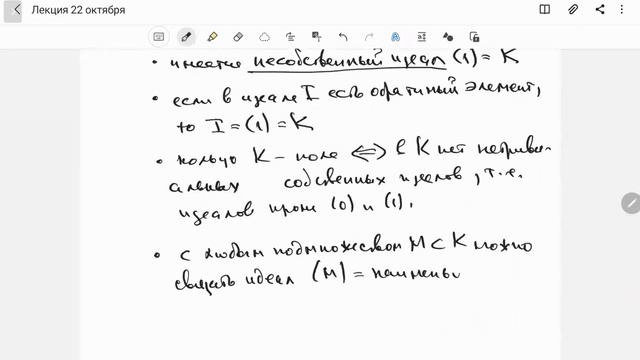 Лекция 22 октября
• имеется несобственный идеал (1) = K
• если в идеале I есть обратимый элемент,
то I = (1) = K
• кольцо K – поле ⟺ в K нет нетриви-
альных собственных идеалов, т.е.
идеалов кроме (0) и (1).
• с любым подмножеством M ⊂ K можно
связать идеал (M) = наименьш